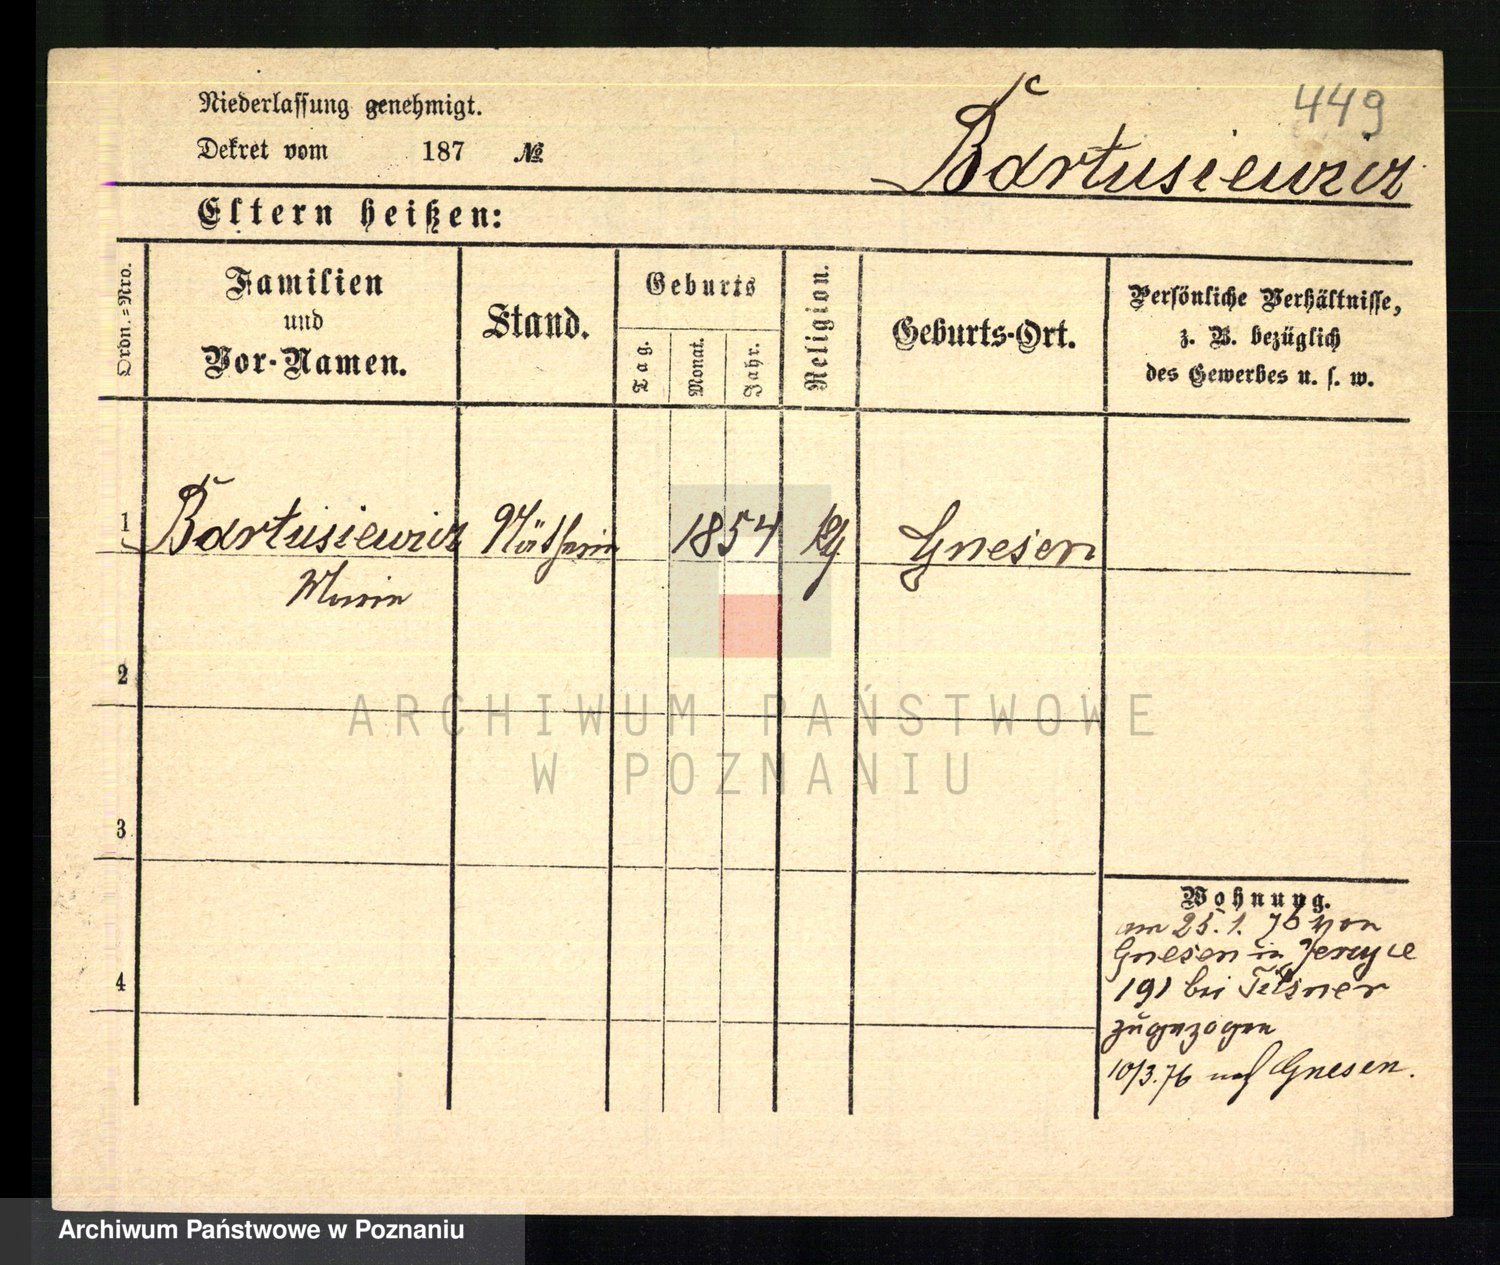 449
Niederlassung genehmigt.
Dekret vom 187 №
Bartusiewicz
Eltern heißen:
Ordn.=Nro.
Familien
und
Vor-Namen.
Stand.
Geburts
Tag.
Monat.
Jahr.
Religion.
Geburts-Ort.
Persönliche Verhältnisse,
z. B. bezüglich
des Gewerbes u. s. w.
1 Bartusiewicz Nätherin 1854 Gnesen
2
ARCHIWUM PAŃSTWOWE
W POZNANIU
3
Wohnung.
am 25.1.76 von
Gnesen in Jerzyce
4
191 bei Tilsner
zugezogen
10/3.76 nach Gnesen.
Archiwum Państwowe w Poznaniu